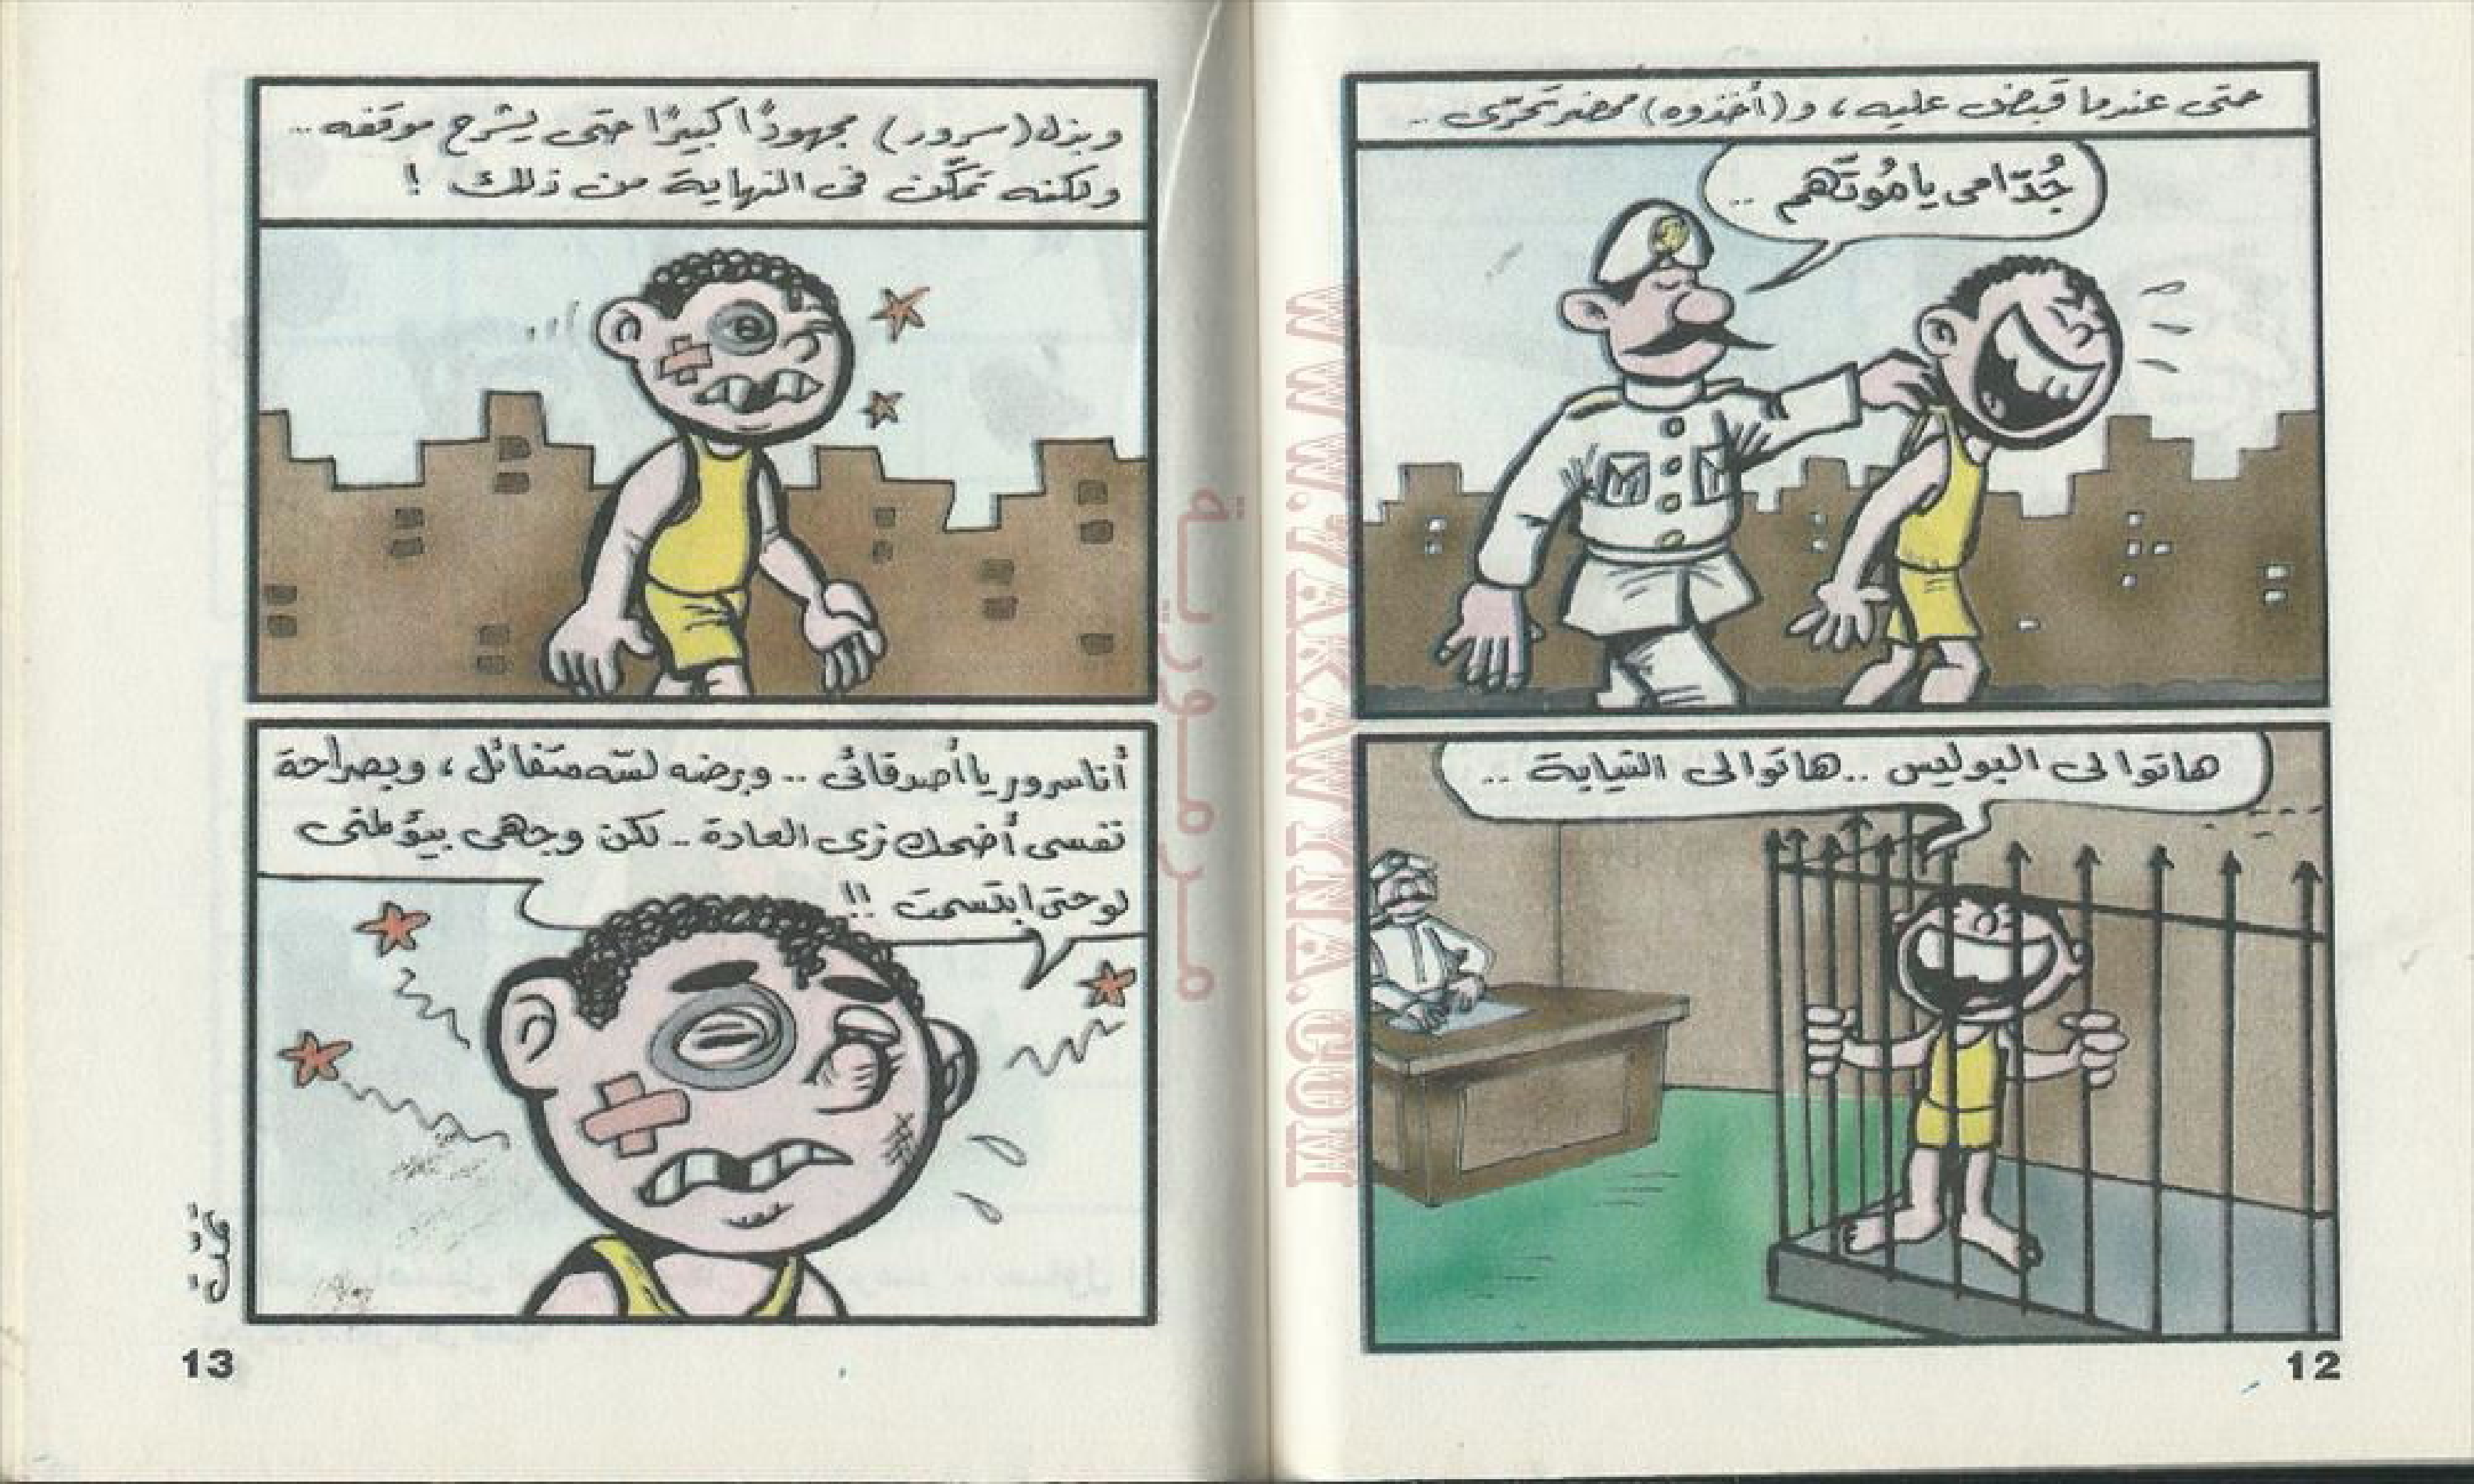 حتى عندما قبض عليه ، و(أخذوه) محضر تحرّى ..
جُدّامى يا مُوتَهم ..
هاتوا لى البوليس .. هاتوا لى النيابة ..
12
وبذل (سرور) مجهودًا كبيرًا حتى يشرح موقفه ..
ولكنه تمكَّن فى النهاية من ذلك !
أنا سرور يا أصدقائى .. وبرضه لسّه متفائل ، وبصراحة
نفسى أضحك زى العادة .. لكن وجهى بيؤلمنى
لو حتى ابتسمت !!
13
مـرمـوريـة
WWW.ZAKAWINA.COM